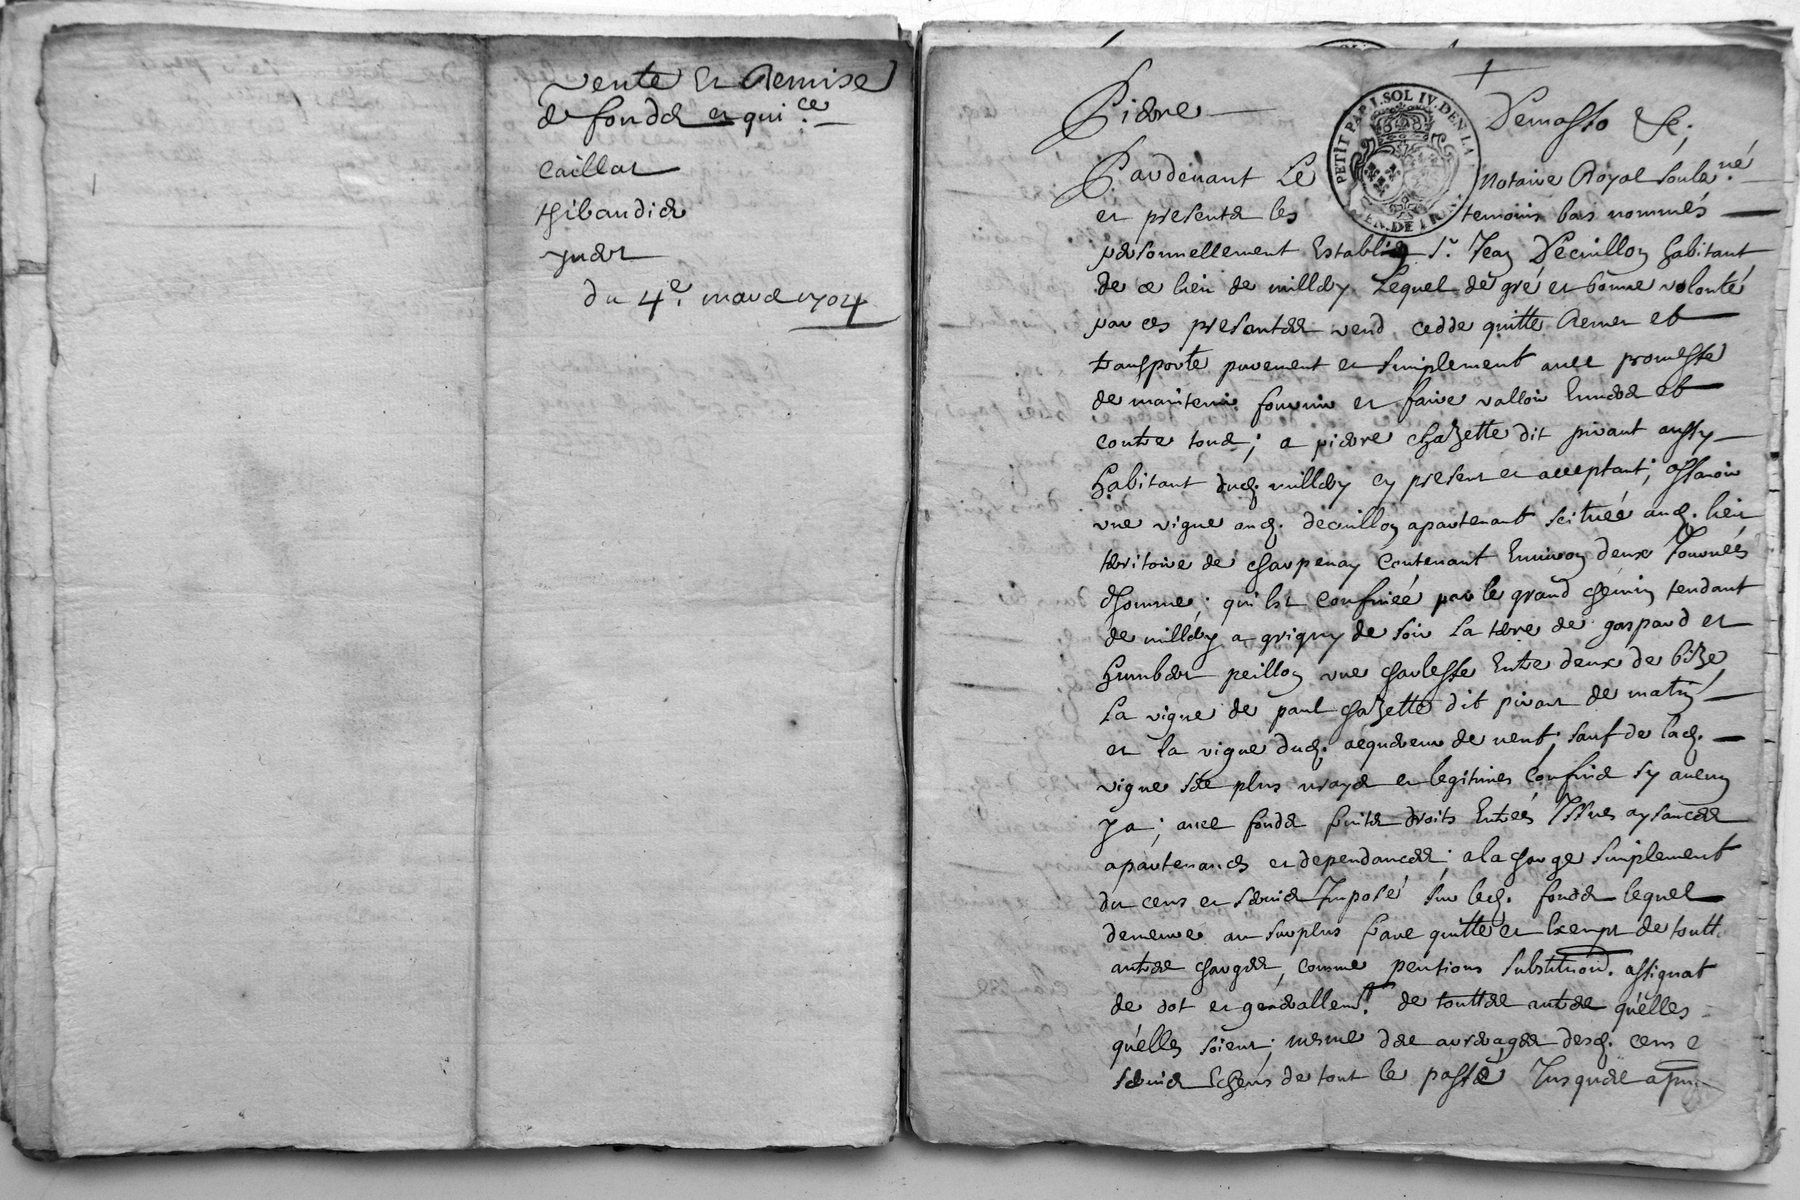 vente et Remise
de fondz et qui.ce
Caillat
thibaudier
du 4e. mars 1704
PETIT PAP. 1. SOL IV. DEN. LA
GEN. DE
Pierre Demasso &c;
Pardevant Le Notaire Royal soub.né
et presents les temoins bas nommés
personnellement Establi Sr. Jean Decrillon habitant
de ce lieu de millery Lequel de gré et bonne volonté
par ces presentes vend, cedde quitte Remet et
transporte purement et simplement avec promesse
de maintenir fournir et faire valloir Envers et
contre tous; a pierre chazette dit pivant aussy
habitant dud. millery cy present et acceptant; assavoir
une vigne aud. decrillon apartenant scituée aud. lieu
teritoire de charpenay Contenant Environ deux Journées
d'homme; qui Est Confinée par le grand chemin tendant
de millery a grigny de soir La terre de gaspard et
humbert peillon une charlesse Entre deux de bize
La vigne de paul chazette dit pivant de matin
et la vigne dud. acquereur de vent; sauf de lad.
vigne ses plus vrays et legitimes Confins sy aucun
y a; avec fonds fruits droits Entrées Issues aysances
apartenances et dependances; a la charge simplement
du cens et servis Imposé sur led. fonds lequel
demeure au surplus franc quitte et Exempt de toutt.
autres charges, comme pentions substitution. assignat
de dot et generallemt. de touttes autres quelles
quelles soient; mesme des arrerages desd. cens e
servis Echeus de tout le passé Jusques a